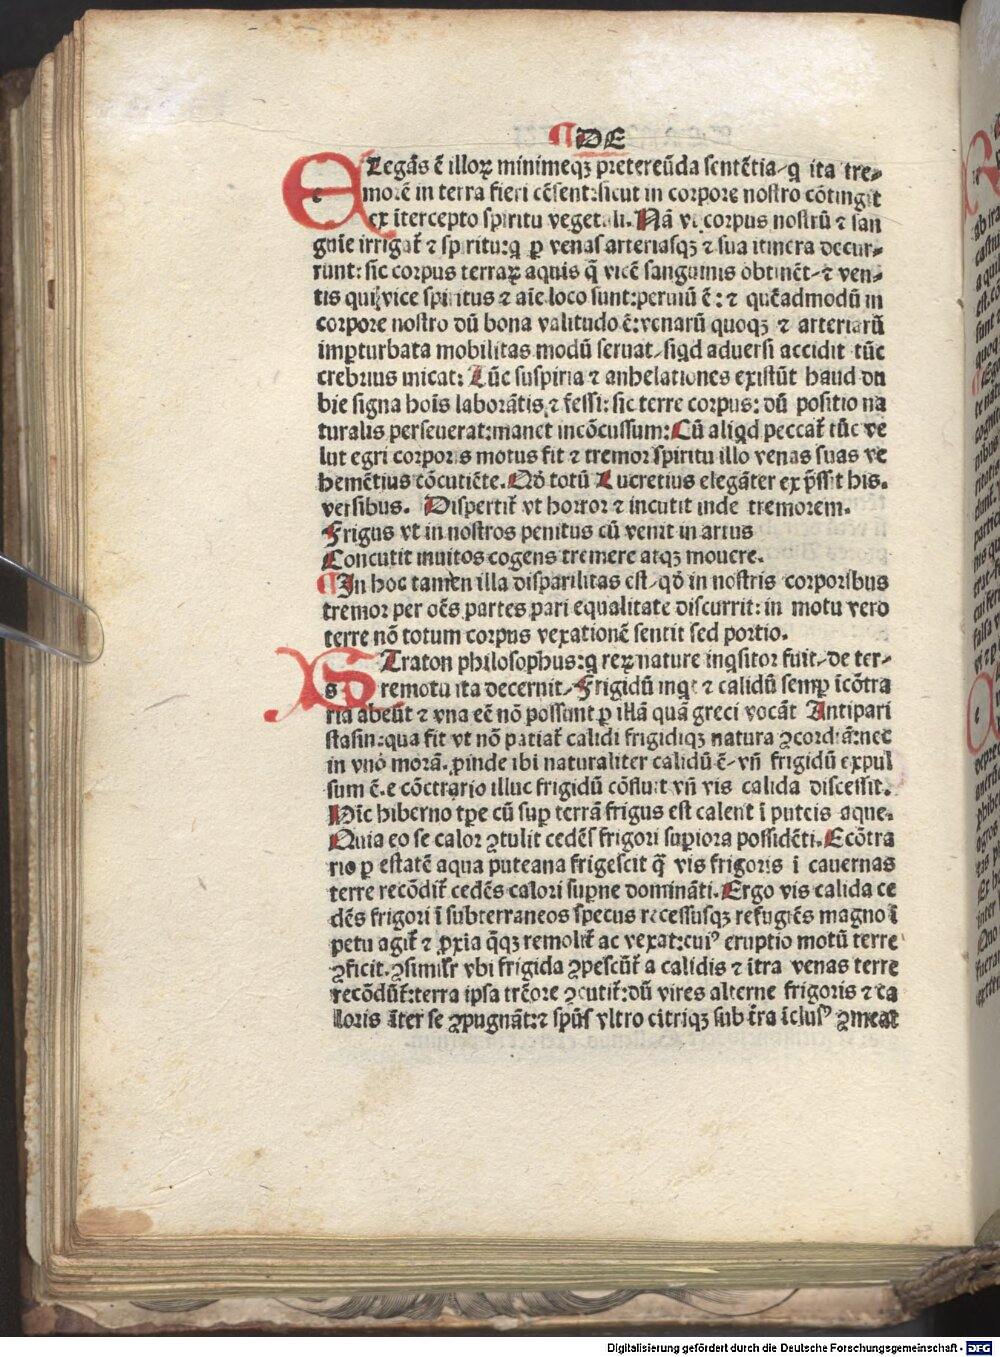 ¶DE
ELegãs ẽ illoꝝ minimeqꝫ pretereũda sentẽtia, q̇ ita tre⸗
morẽ in terra fieri cẽsent:sicut in corpore nostro cõtingit
ex ĩtercepto spiritu vegetali. Nã vt corpus nostrũ ⁊ san
guĩe irrigat̃ ⁊ spiritu:q̇ ꝑ venas arteriasqꝫ ⁊ sua itinera decur⸗
runt: sic corpus terraꝝ aquis q̃ vicẽ sanguinis obtinẽt, ⁊ ven⸗
tis qui vice spiritus ⁊ aĩe loco sunt:peruiũ ẽ: ⁊ quẽadmodũ in
corpore nostro dũ bona valitudo ẽ:venarũ quoqꝫ ⁊ arteriarũ
imꝑturbata mobilitas modũ seruat, siqd aduersi accidit tũc
crebrius micat: Tũc suspiria ⁊ anhelationes existũt haud du
bie signa hoĩs laborãtis ⁊ fessi: sic terre corpus: dũ positio na
turalis perseuerat:manet incõcussum: Cũ aliqd peccat̃ tũc ve
lut egri corporis motus fit ⁊ tremor spiritu illo venas suas ve
hemẽtius cõcutiẽte. Qõ totũ Lucretius elegãter exp̃ssit his.
versibus. Dispertit̃ vt horror ⁊ incutit inde tremorem.
Frigus vt in nostros penitus cũ venit in artus
Concutit inuitos cogens tremere atqꝫ mouere.
¶In hoc tamen illa disparilitas est, qõ in nostris corporibus
tremor per oẽs partes pari equalitate discurrit: in motu vero
terre nõ totum corpus vexationẽ sentit sed portio.
STraton philosophus:q̇ reꝝ nature inqsitor fuit, de ter⸗
remotu ita decernit, Frigidũ inqt ⁊ calidũ semꝑ ĩcõtra
ria abeũt ⁊ vna eẽ nõ possunt ꝑ illã quã greci vocãt Antipari
stasin:qua fit vt nõ patiat̃ calidi frigidiqꝫ natura ꝯcordiã:nec
in vno morã. ꝓinde ibi naturaliter calidũ ẽ, vñ frigidũ expul
sum ẽ.e cõtrario illuc frigidũ cõfluit vñ vis calida discessit.
Hĩc hiberno tꝑe cũ suꝑ terrã frigus est calent ĩ puteis aque.
Quia eo se calor ꝯtulit cedẽs frigori suꝑiora possidẽti. Ecõtra
rio ꝑ estatẽ aqua puteana frigescit q̃ vis frigoris ĩ cauernas
terre recõdit̃ cedẽs calori suꝑne dominãti. Ergo vis calida ce
dẽs frigori ĩ subterraneos specus recessusqꝫ refugiẽs magno ĩ
petu agit̃ ⁊ ꝓxia q̃qꝫ remolit̃ ac vexat:cuiꝰ eruptio motũ terre
ꝯficit. ꝯsimilr̃ vbi frigida ꝯpescũt̃ a calidis ⁊ ĩtra venas terre
recõdũt̃:terra ipsa trẽore ꝯcutit̃:dũ vires alterne frigoris ⁊ ca
loris ĩter se ꝯpugnãt:⁊ spũs vltro citriqꝫ sub tr̃a ĩclusꝰ ꝯmeat